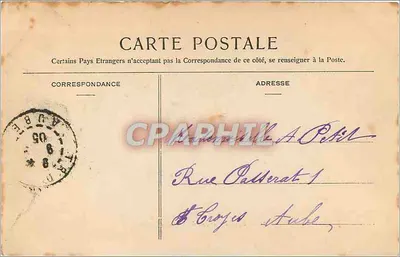 CARTE POSTALE
Certains Pays Etrangers n'acceptant pas la Correspondance de ce côté, se renseigner à la Poste.
CORRESPONDANCE
ADRESSE
CPARHIL
A Petit
Rue Passerat 1
Troyes Aube
AUBE
9
05